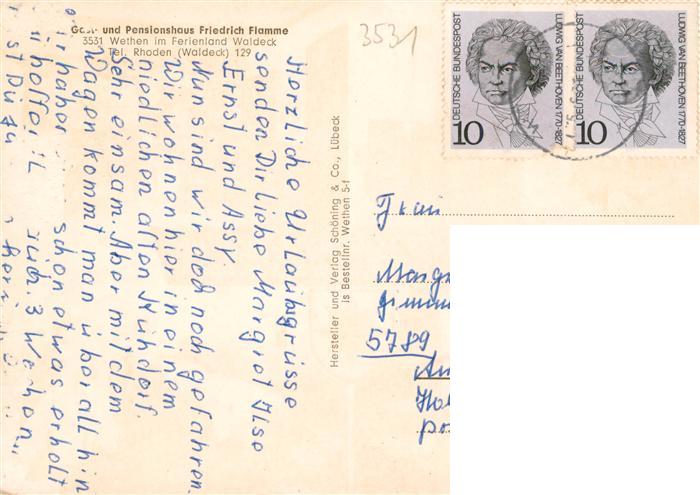 Gast- und Pensionshaus Friedrich Flamme
3531 Wethen im Ferienland Waldeck
Tel. Rhoden (Waldeck) 129
3531
DEUTSCHE BUNDESPOST
10
LUDWIG VAN BEETHOVEN 1770-1827
DEUTSCHE BUNDESPOST
10
LUDWIG VAN BEETHOVEN 1770-1827
Herzliche Urlaubsgrüsse
senden Dir liebe Margret Ilse
Ernst und Assy.
Nun sind wir doch noch gefahren.
Wir wohnen hier in einem
niedlichen alten Mühdorf.
Sehr einsam. Aber mit dem
Wagen kommt man überall hin
schon etwas erholt
3 Wochen
ist Du
Hersteller und Verlag Schöning & Co., Lübeck
is Bestellnr. Wethen 5-f
Frau
Marg
5789